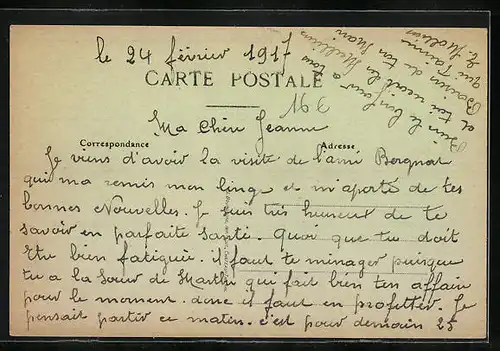 le 24 février 1917
CARTE POSTALE
16 €
Ma Chère Jeanne
Correspondance
Adresse
Je viens d'avoir la visite de l'ami Borgnat
qui ma remis mon linge et m'aporté de tes
bonnes Nouvelles. Je suis très heureux de te
savoir en parfaite santé. Quoi que tu doit
Etre bien fatiguée. il faut te ménager puisque
tu a la Soeur de Marthe qui fait bien ton affaire
pour le moment. donc il faut en profitter. Je
pensait partir ce matin. c'est pour demain 25
Bien le bonjour a tous
et toi reçoit les Meilleurs
Baisers de ton Mari
que t'aime